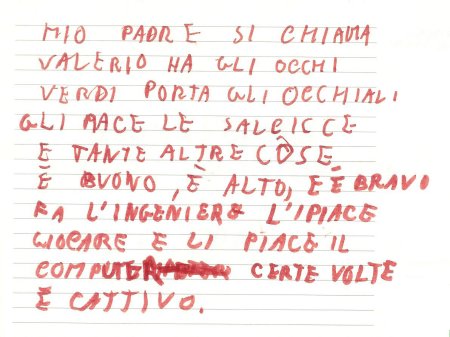 MIO PADRE SI CHIAMA
VALERIO HA GLI OCCHI
VERDI PORTA GLI OCCHIALI
GLI PIACE LE SALCICCE
E TANTE ALTRE COSE
È BUONO, È ALTO, E È BRAVO
FA L'INGENIERE L'IPIACE
GIOCARE E LI PIACE IL
COMPUTER CERTE VOLTE
È CATTIVO.